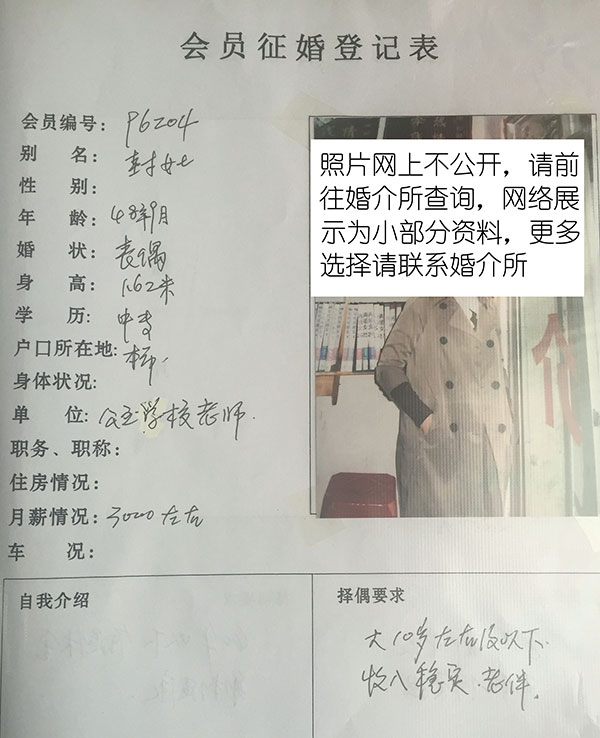 会员征婚登记表
会员编号：P6204
别 名：封女士
性 别：
年 龄：48年9月
婚 状：丧偶
身 高：1.62米
学 历：中专
户口所在地：
身体状况：
单 位：公立学校老师.
职务、职称：
住房情况：
月薪情况：3000左右
车 况：
照片网上不公开，请前
往婚介所查询，网络展
示为小部分资料，更多
选择请联系婚介所
自我介绍
择偶要求
大10岁左右及以下.
收入稳定.老伴.